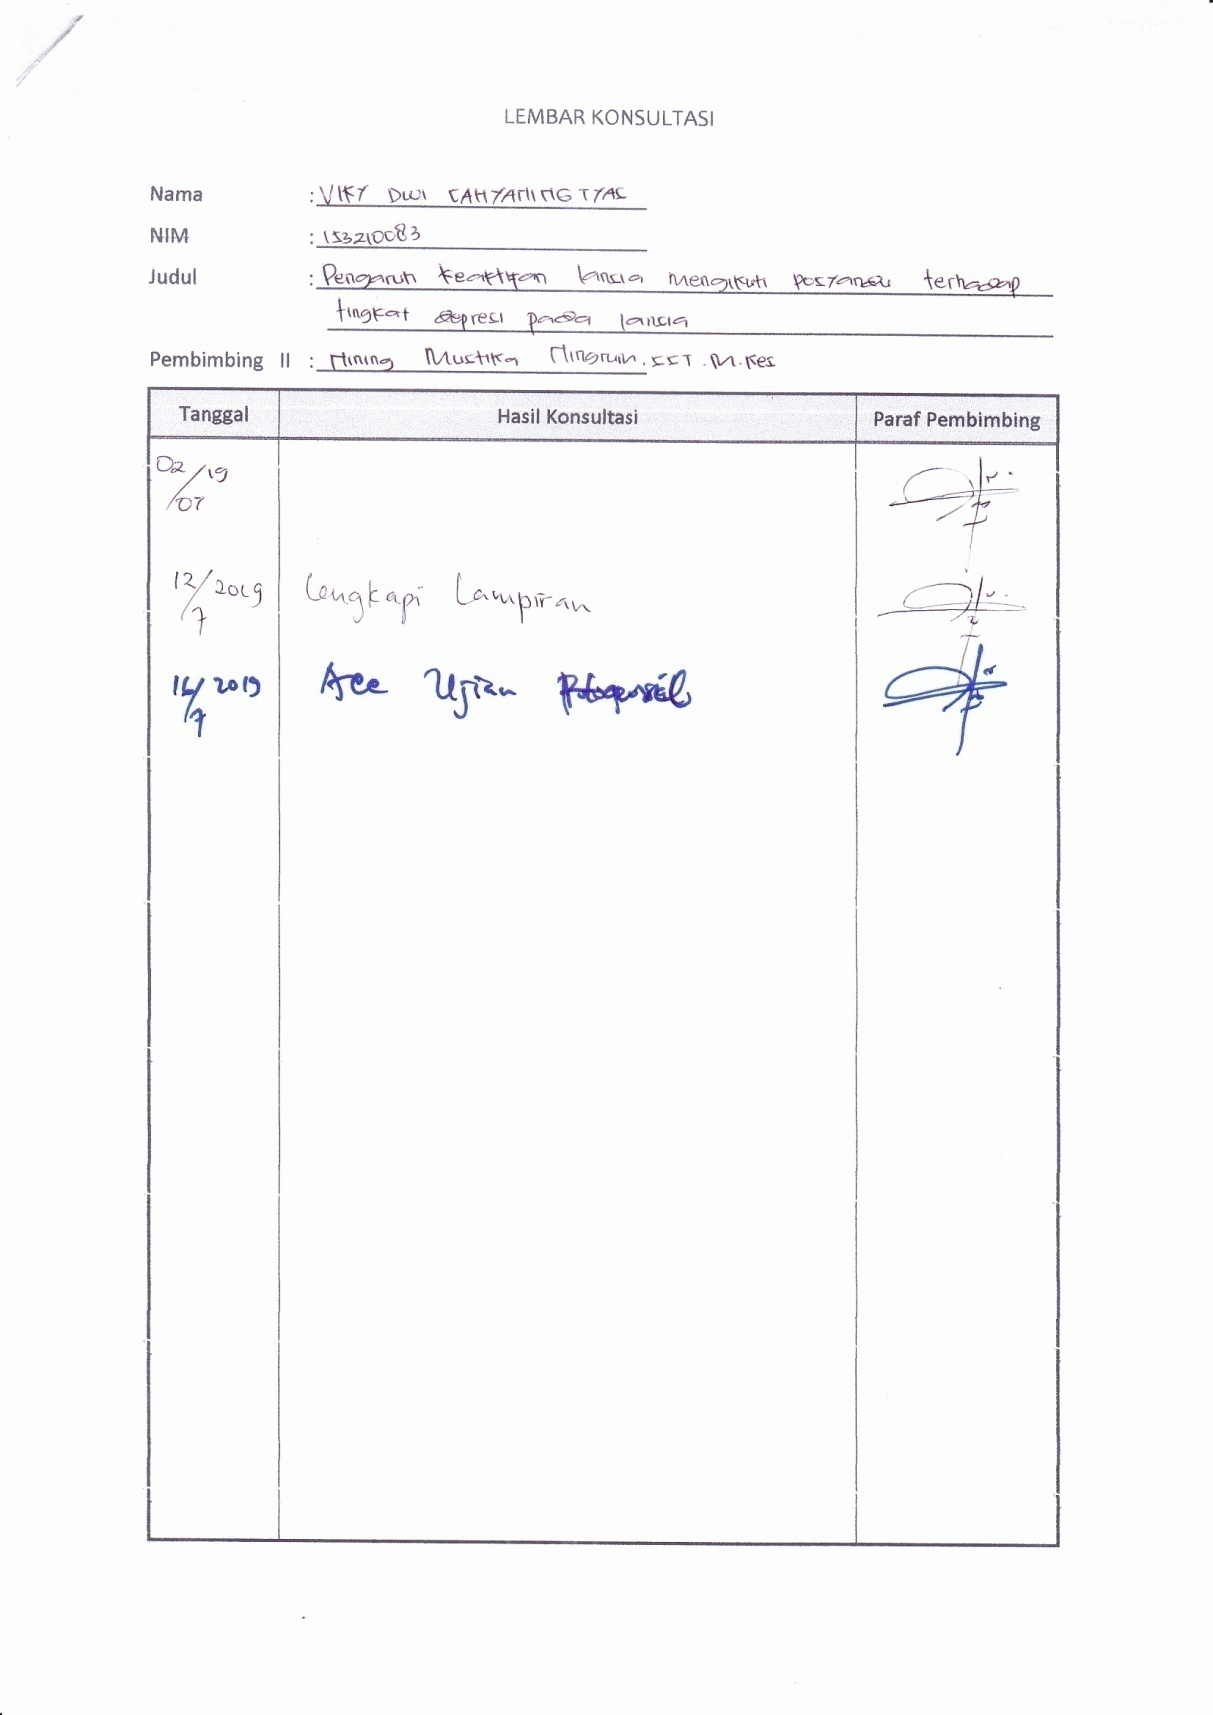 LEMBAR KONSULTASI
Nama : VIKY DWI CAHYANINGTYAS
NIM : 153210083
Judul : Pengaruh keaktifan lansia mengikuti posyandu terhadap
tingkat depresi pada lansia
Pembimbing II : Nining Mustika Ningrum.SST.M.Kes
Tanggal Hasil Konsultasi Paraf Pembimbing
02/07/19
12/7/2019 Lengkapi Lampiran
16/7/2019 Acc Ujian